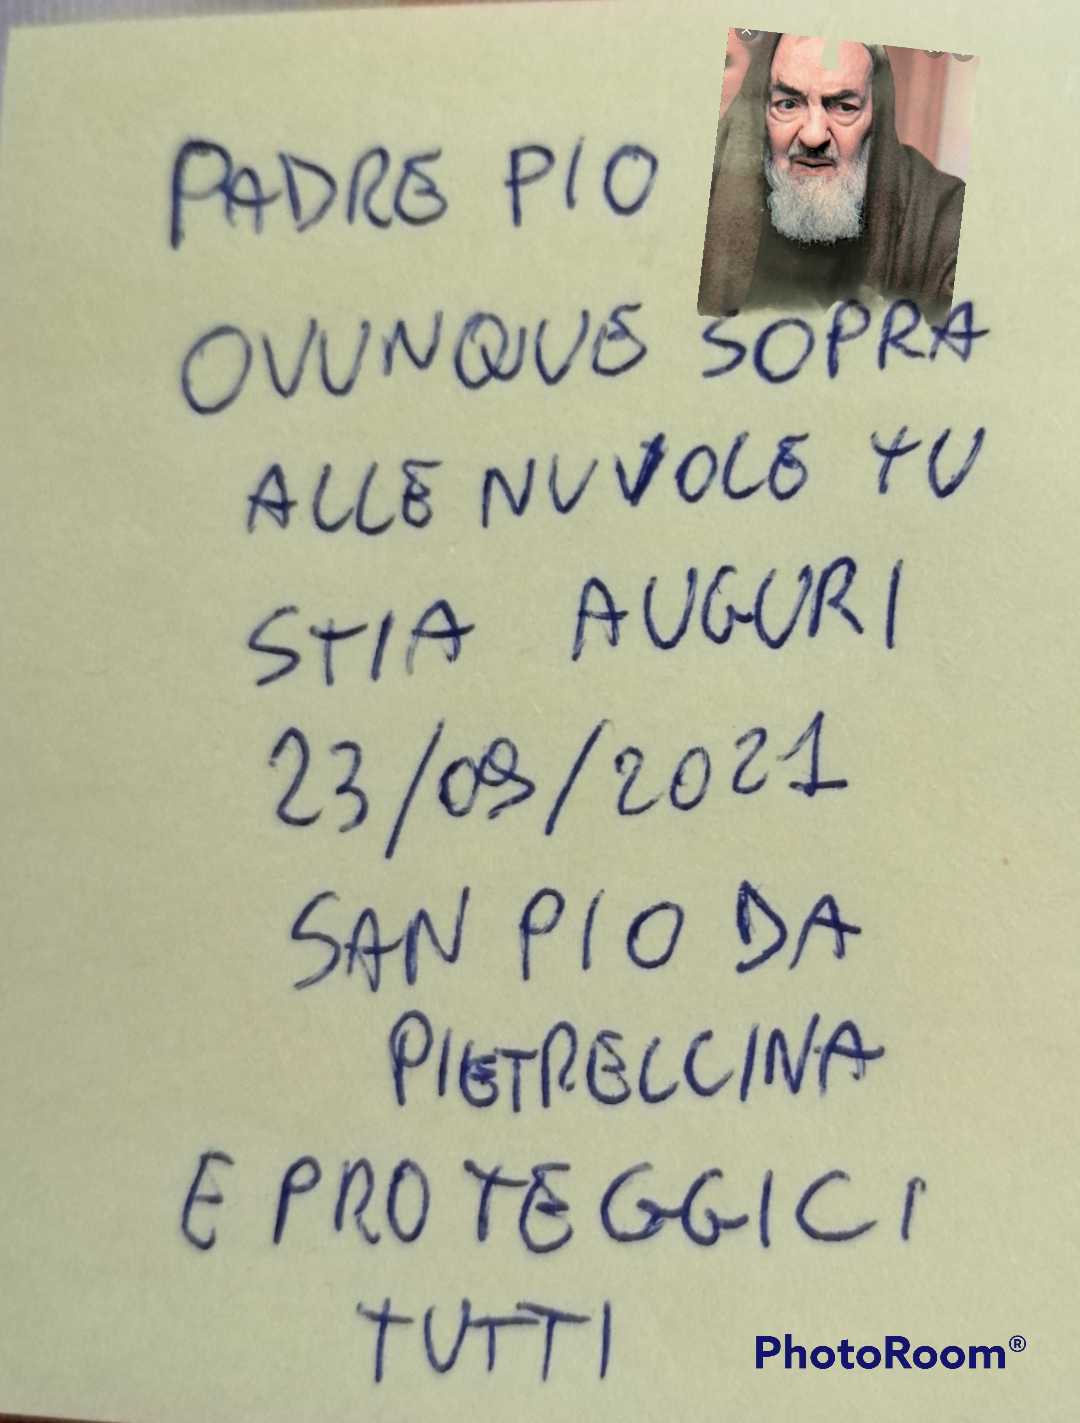 PADRE PIO
OVUNQUE SOPRA
ALLE NUVOLE TU
STIA AUGURI
23/09/2021
SAN PIO DA
PIETRELCINA
E PROTEGGICI
TUTTI
PhotoRoom®